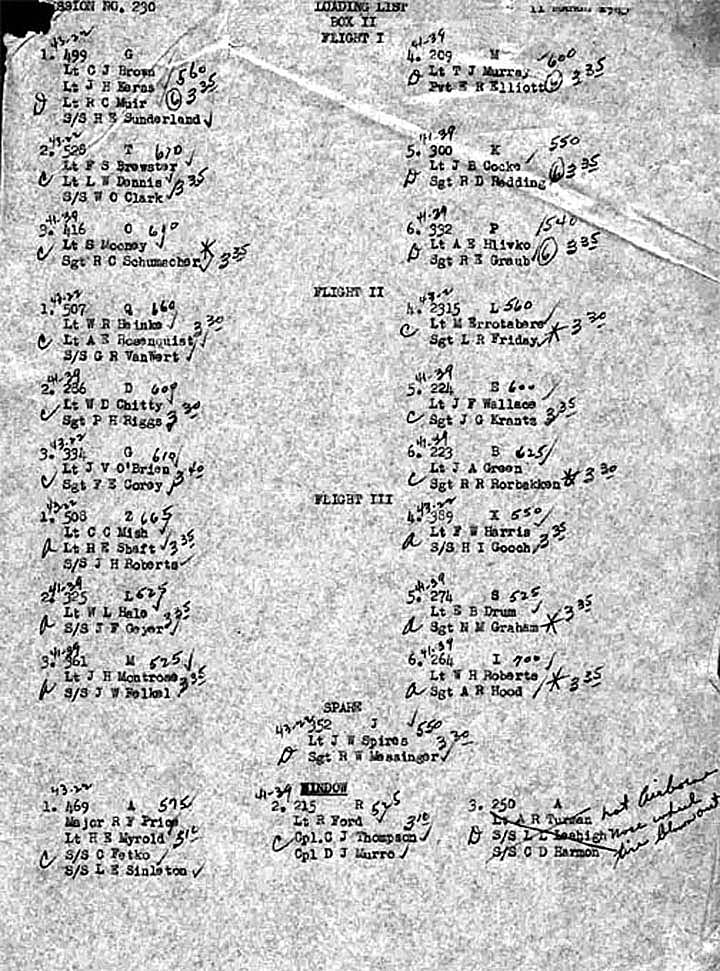 SSION NO. 230
LOADING LIST
BOX II
FLIGHT I
43-22
1. 499 G
Lt C J Brown 560
Lt J H Kerns
D Lt R C Muir 6 3 35
S/S H E Sunderland
2. 526 T 610
Lt F S Brewster
C Lt L W Dennis 3 35
S/S W O Clark
41-39
3. 416 O 610
C Lt S Mooney
Sgt R C Schumacher 3 35
41-39
4. 209 M 600
D Lt T J Murray
Pvt E R Elliott 6 3 35
41-39
5. 300 K 550
Lt J B Cocke
D Sgt R D Redding 6 3 35
41-39
6. 332 P 540
D Lt A E Hlivko
Sgt R E Graub 6 3 35
FLIGHT II
43-22
1. 507 Q 660
Lt W R Heinke 3 30
C Lt A E Rosenquist
S/S G R VanWert
41-39
2. 286 D 600
C Lt W D Chitty
Sgt P H Riggs 3 30
43-22
3. 334 G 610
Lt J V O'Brien
C Sgt F E Corey 3 40
4. 2315 L 560
C Lt M Errotabere
Sgt L R Friday 3 30
41-39
5. 224 E 600
Lt J F Wallace
C Sgt J G Krantz 3 35
41-39
6. 223 B 625
C Lt J A Green
Sgt R R Rorbakken 3 30
FLIGHT III
43-22
1. 508 Z 665
Lt C C Mish
a Lt H E Shaft 3 35
S/S J H Roberts
41-39
2. 325 L 525
Lt W L Hale
a S/S J F Geyer 3 35
41-39
3. 361 M 525
Lt J H Montrose
a S/S J W Felkel 3 35
43-22
4. 389 X 550
Lt F W Harris
a S/S H I Gooch 3 35
41-39
5. 274 S 525
Lt E B Drum
a Sgt N M Graham 3 35
41-39
6. 264 I 700
Lt W H Roberts
a Sgt A R Hood 3 35
SPARE
43-22 352 J 550
Lt J W Spires
D Sgt R W Messinger 3 30
WINDOW
43-22
1. 469 A 575
Major R F Price
Lt H E Myrold 3 10
C S/S C Fetko
S/S L E Sinleton
41-39
2. 215 R 525
Lt R Ford 3 10
C Cpl C J Thompson
Cpl D J Murro
3. 250 A not Airborne
Lt A R Turman
D S/S L L Leehigh nose wheel
S/S C D Harmon tire blowout